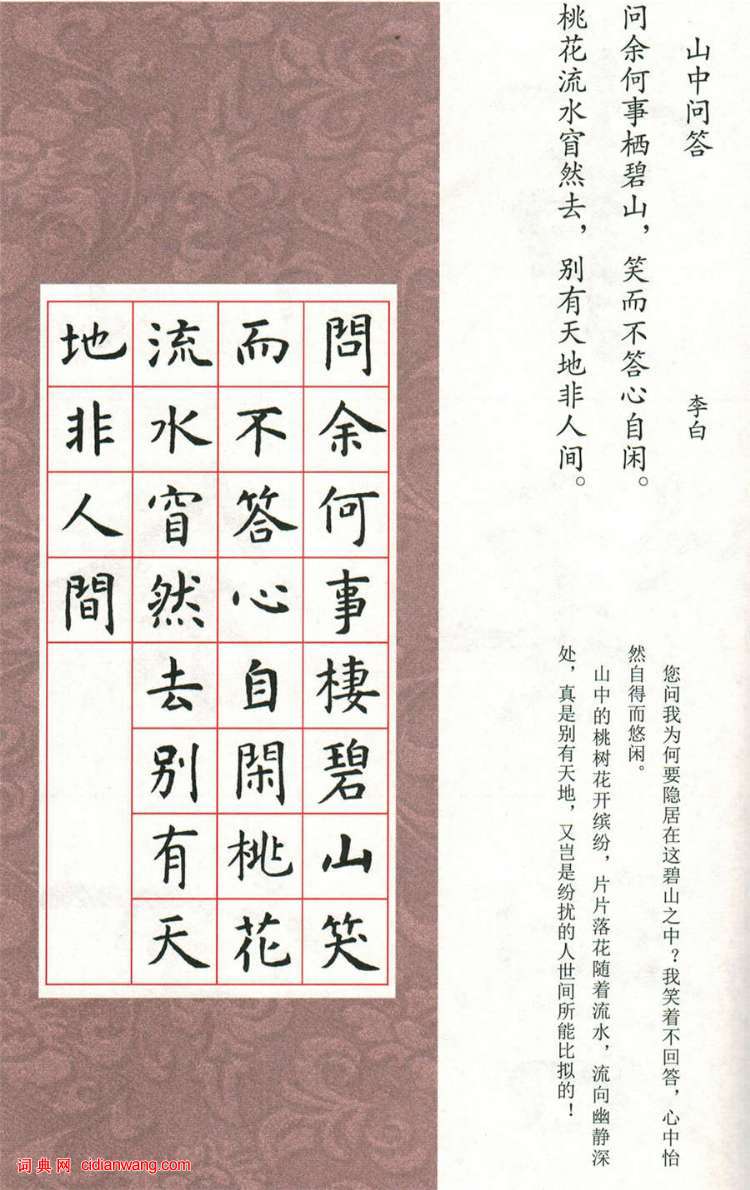 山中问答
李白
问余何事栖碧山，笑而不答心自闲。
桃花流水窅然去，别有天地非人间。
您问我为何要隐居在这碧山之中？我笑着不回答，心中怡
然自得而悠闲。
山中的桃树花开缤纷，片片落花随着流水，流向幽静深
处，真是别有天地，又岂是纷扰的人世间所能比拟的！
問余何事棲碧山笑
而不答心自閑桃花
流水窅然去别有天
地非人間
词典网 cidianwang.com